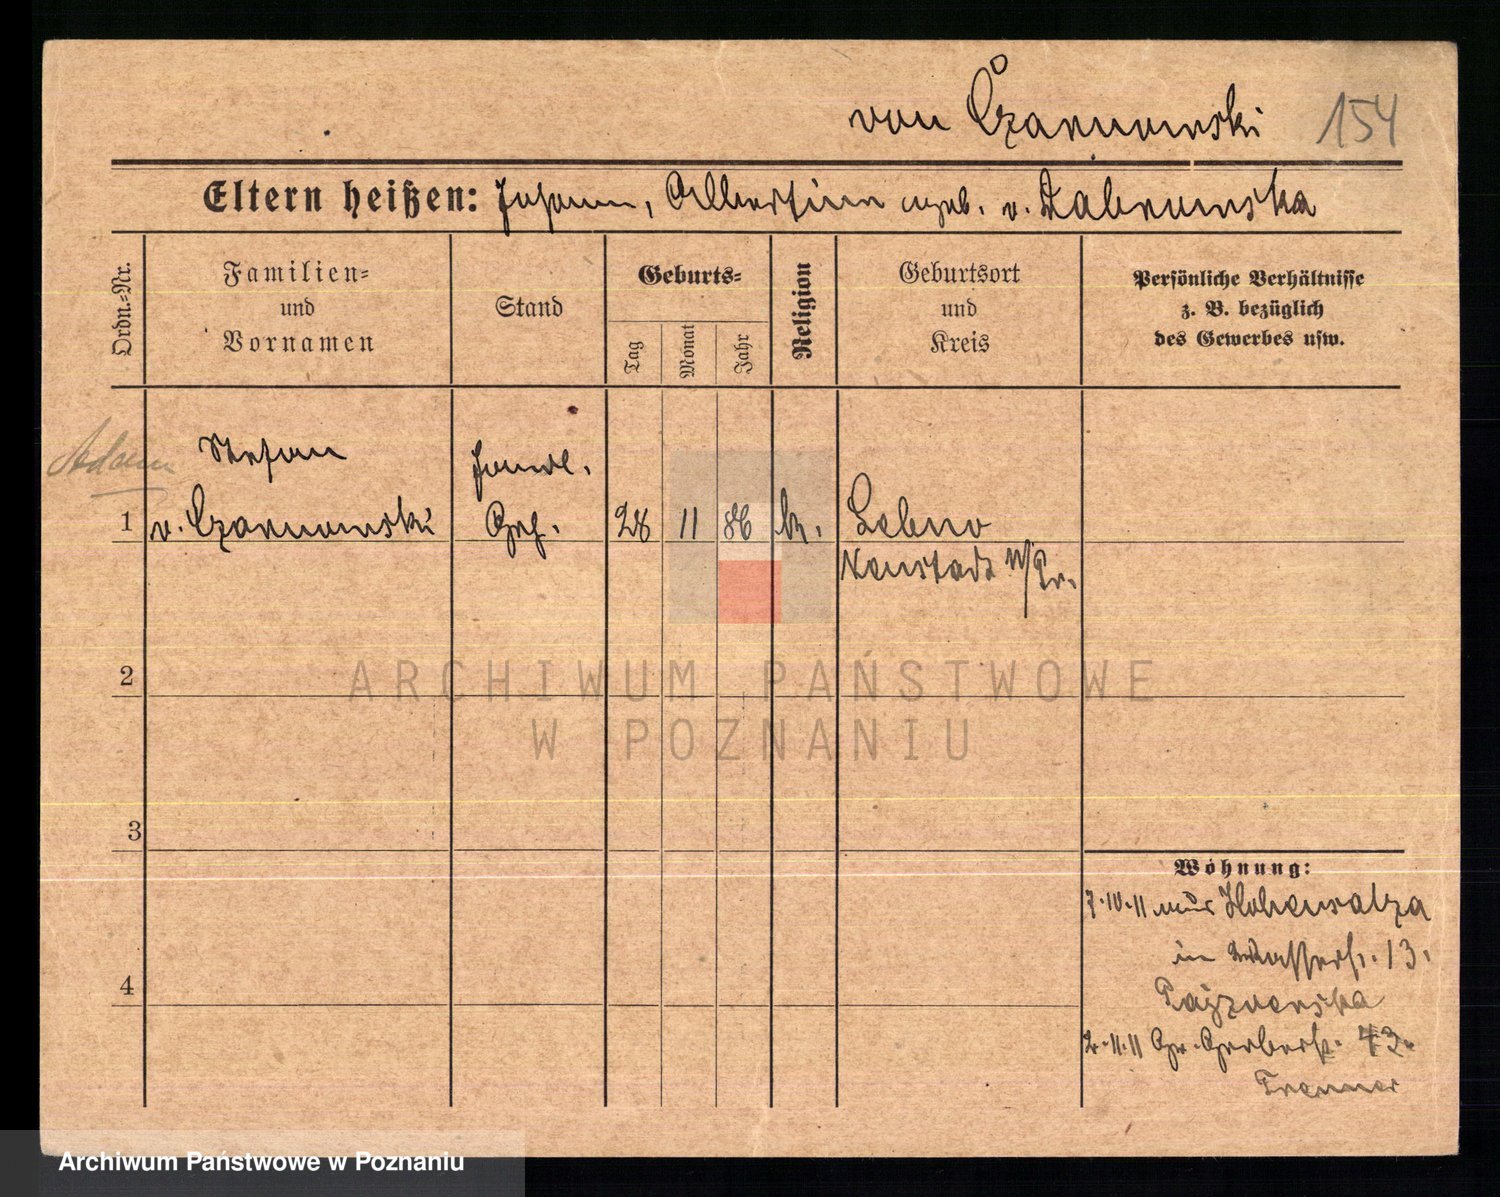 von Czarnowski 154
Eltern heißen: Johann, Albertine geb. v. Dabrowska
Ordn.-Nr.
Familien-
und
Vornamen
Stand
Geburts-
Tag
Monat
Jahr
Religion
Geburtsort
und
Kreis
Persönliche Verhältnisse
z. B. bezüglich
des Gewerbes usw.
Adam
Stefan
v. Czarnowski
Handl.
Geh.
1
28
11
86
k.
Lebno
Neustadt W/Pr.
2
ARCHIWUM PAŃSTWOWE
W POZNANIU
3
Wohnung:
7.10.11 aus Hohensalza
in Wasserstr. 13.
4
2.11.11 Gr. Gerberstr. 43.
Archiwum Państwowe w Poznaniu